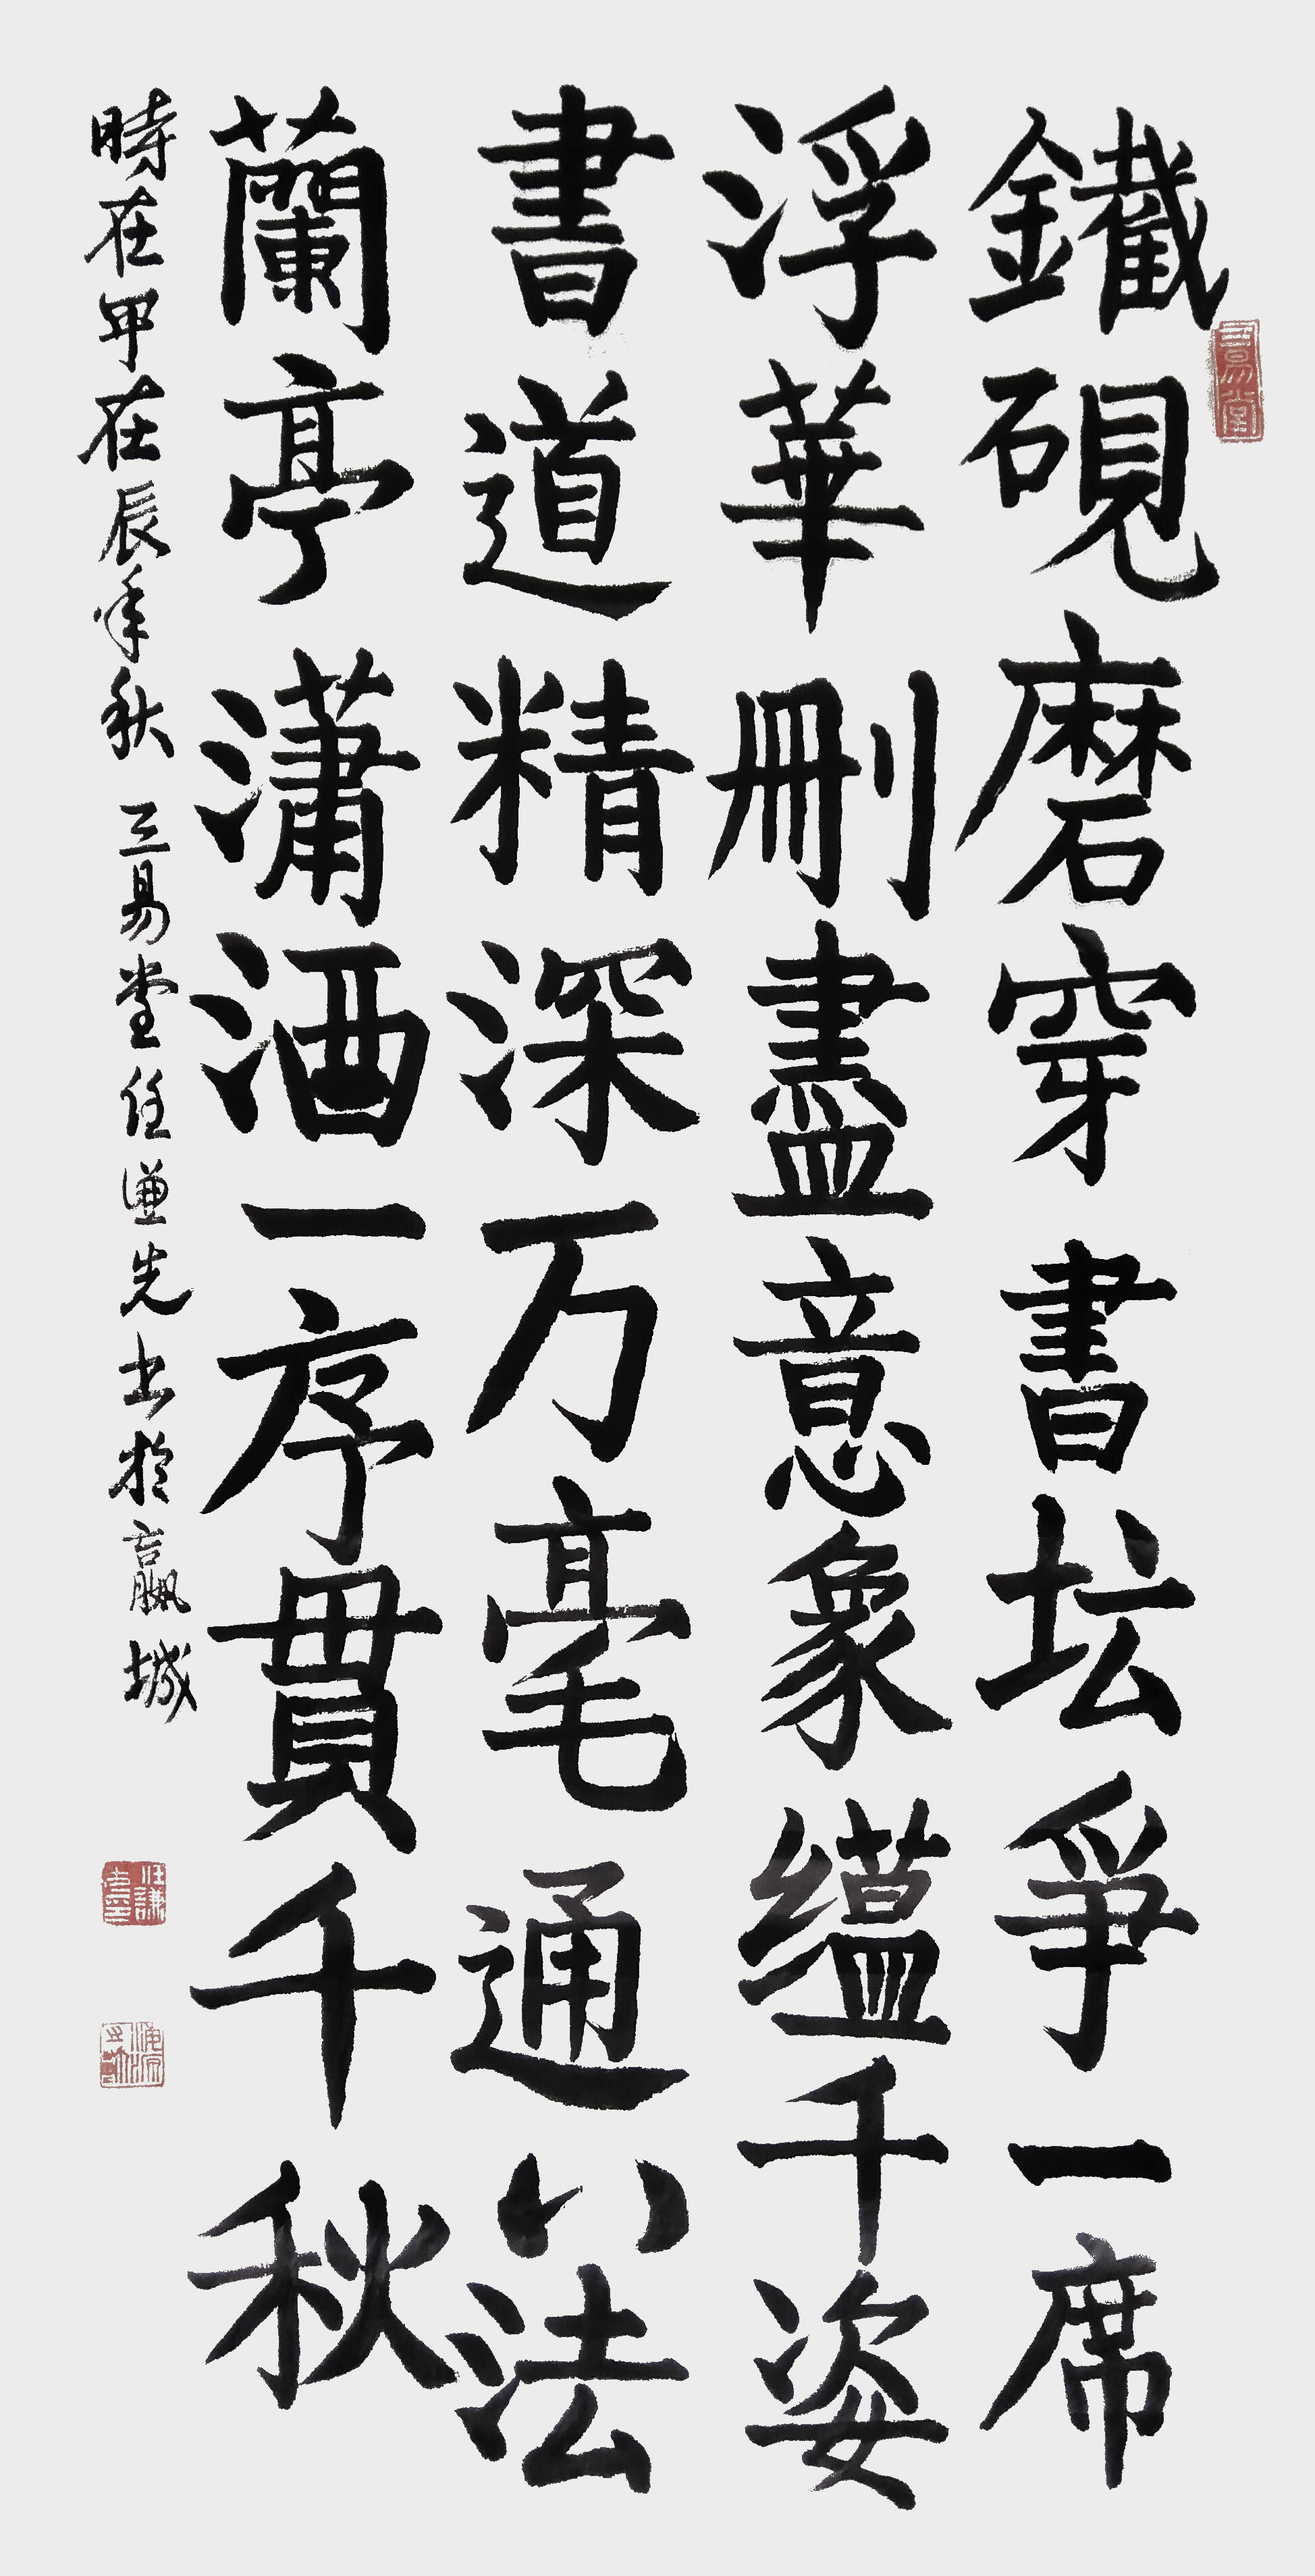 鐵硯磨穿書坛爭一席
浮華刪盡意象縕千姿
書道精深万毫通八法
蘭亭瀟洒一序貫千秋
時在甲在辰年秋三易堂任谦先书於嬴城
三易堂